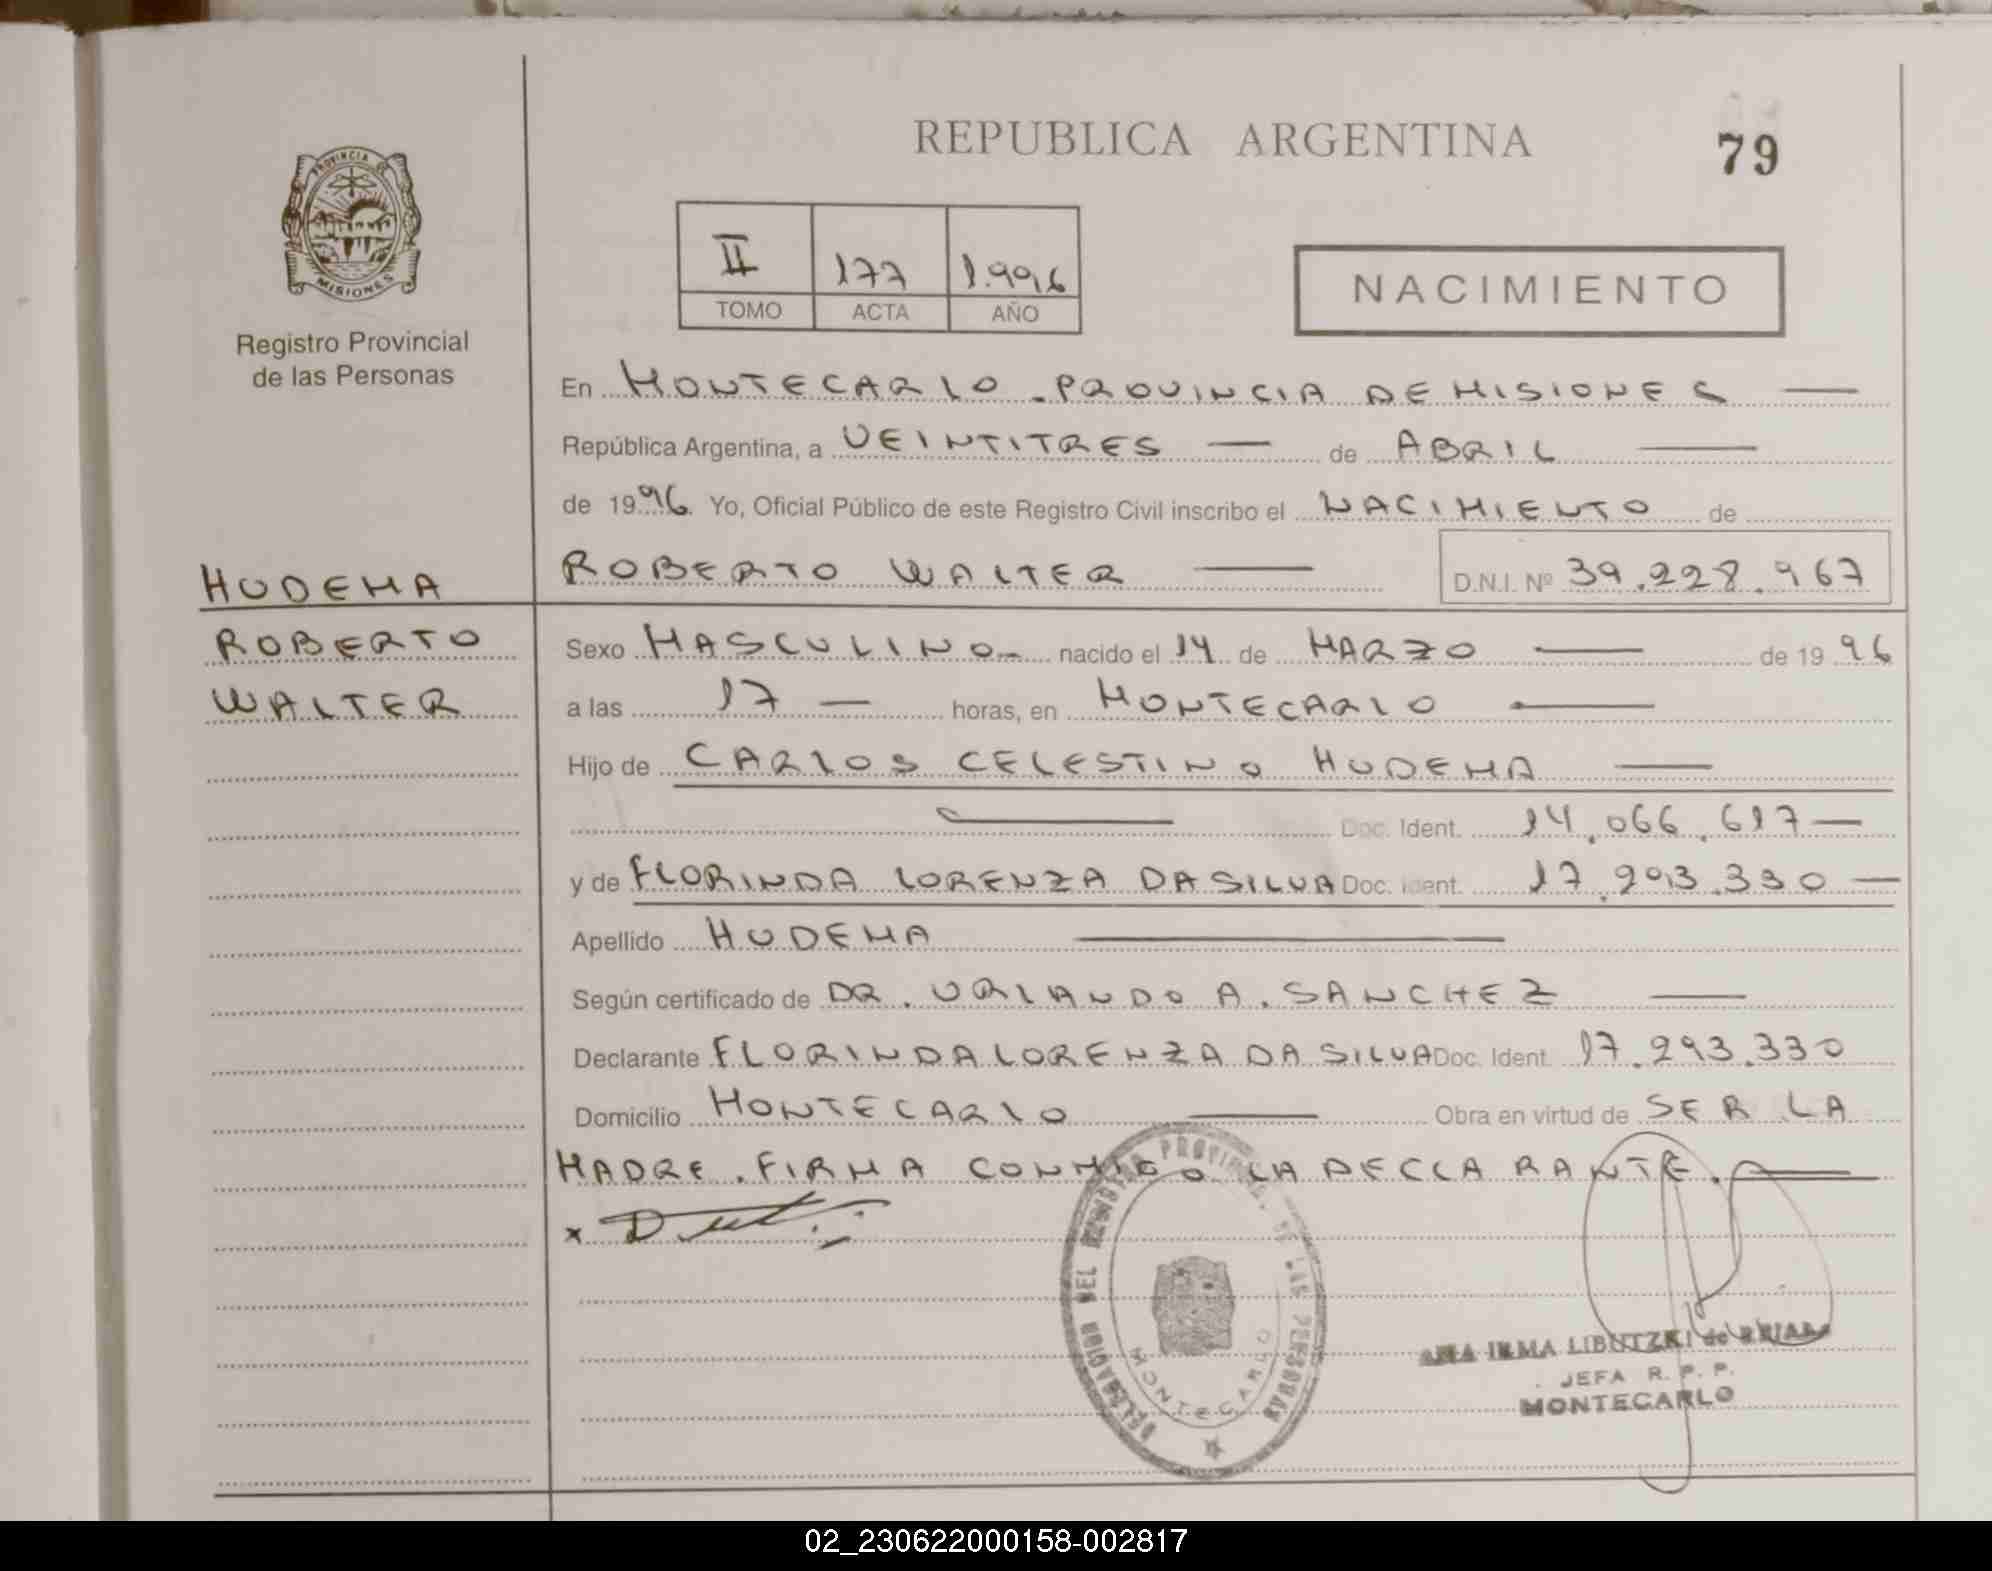 REPUBLICA ARGENTINA
79
PROVINCIA DE
MISIONES
Registro Provincial
de las Personas
II 177 1.996
TOMO ACTA AÑO
NACIMIENTO
En MONTECARLO - PROVINCIA DE MISIONES
República Argentina, a VEINTITRES de ABRIL
de 1996. Yo, Oficial Público de este Registro Civil inscribo el NACIMIENTO de
HUDEMA
ROBERTO WALTER D.N.I. Nº 39.228.967
ROBERTO
WALTER
Sexo MASCULINO- nacido el 14 de MARZO de 1996
a las 17 horas, en MONTECARLO
Hijo de CARLOS CELESTINO HUDEMA
Doc. Ident. 14.066.617
y de FLORINDA LORENZA DA SILVA Doc. Ident. 17.293.330
Apellido HUDEMA
Según certificado de DR. ORLANDO A. SANCHEZ
Declarante FLORINDA LORENZA DA SILVA Doc. Ident. 17.293.330
Domicilio MONTECARLO Obra en virtud de SER LA
MADRE. FIRMA CONMIGO LA DECLARANTE.
x
DELEGACION DEL REGISTRO PROVINCIAL DE LAS PERSONAS
MONTECARLO
ANA IRMA LIBUTZKI de
JEFA R. P. P.
MONTECARLO
02_230622000158-002817